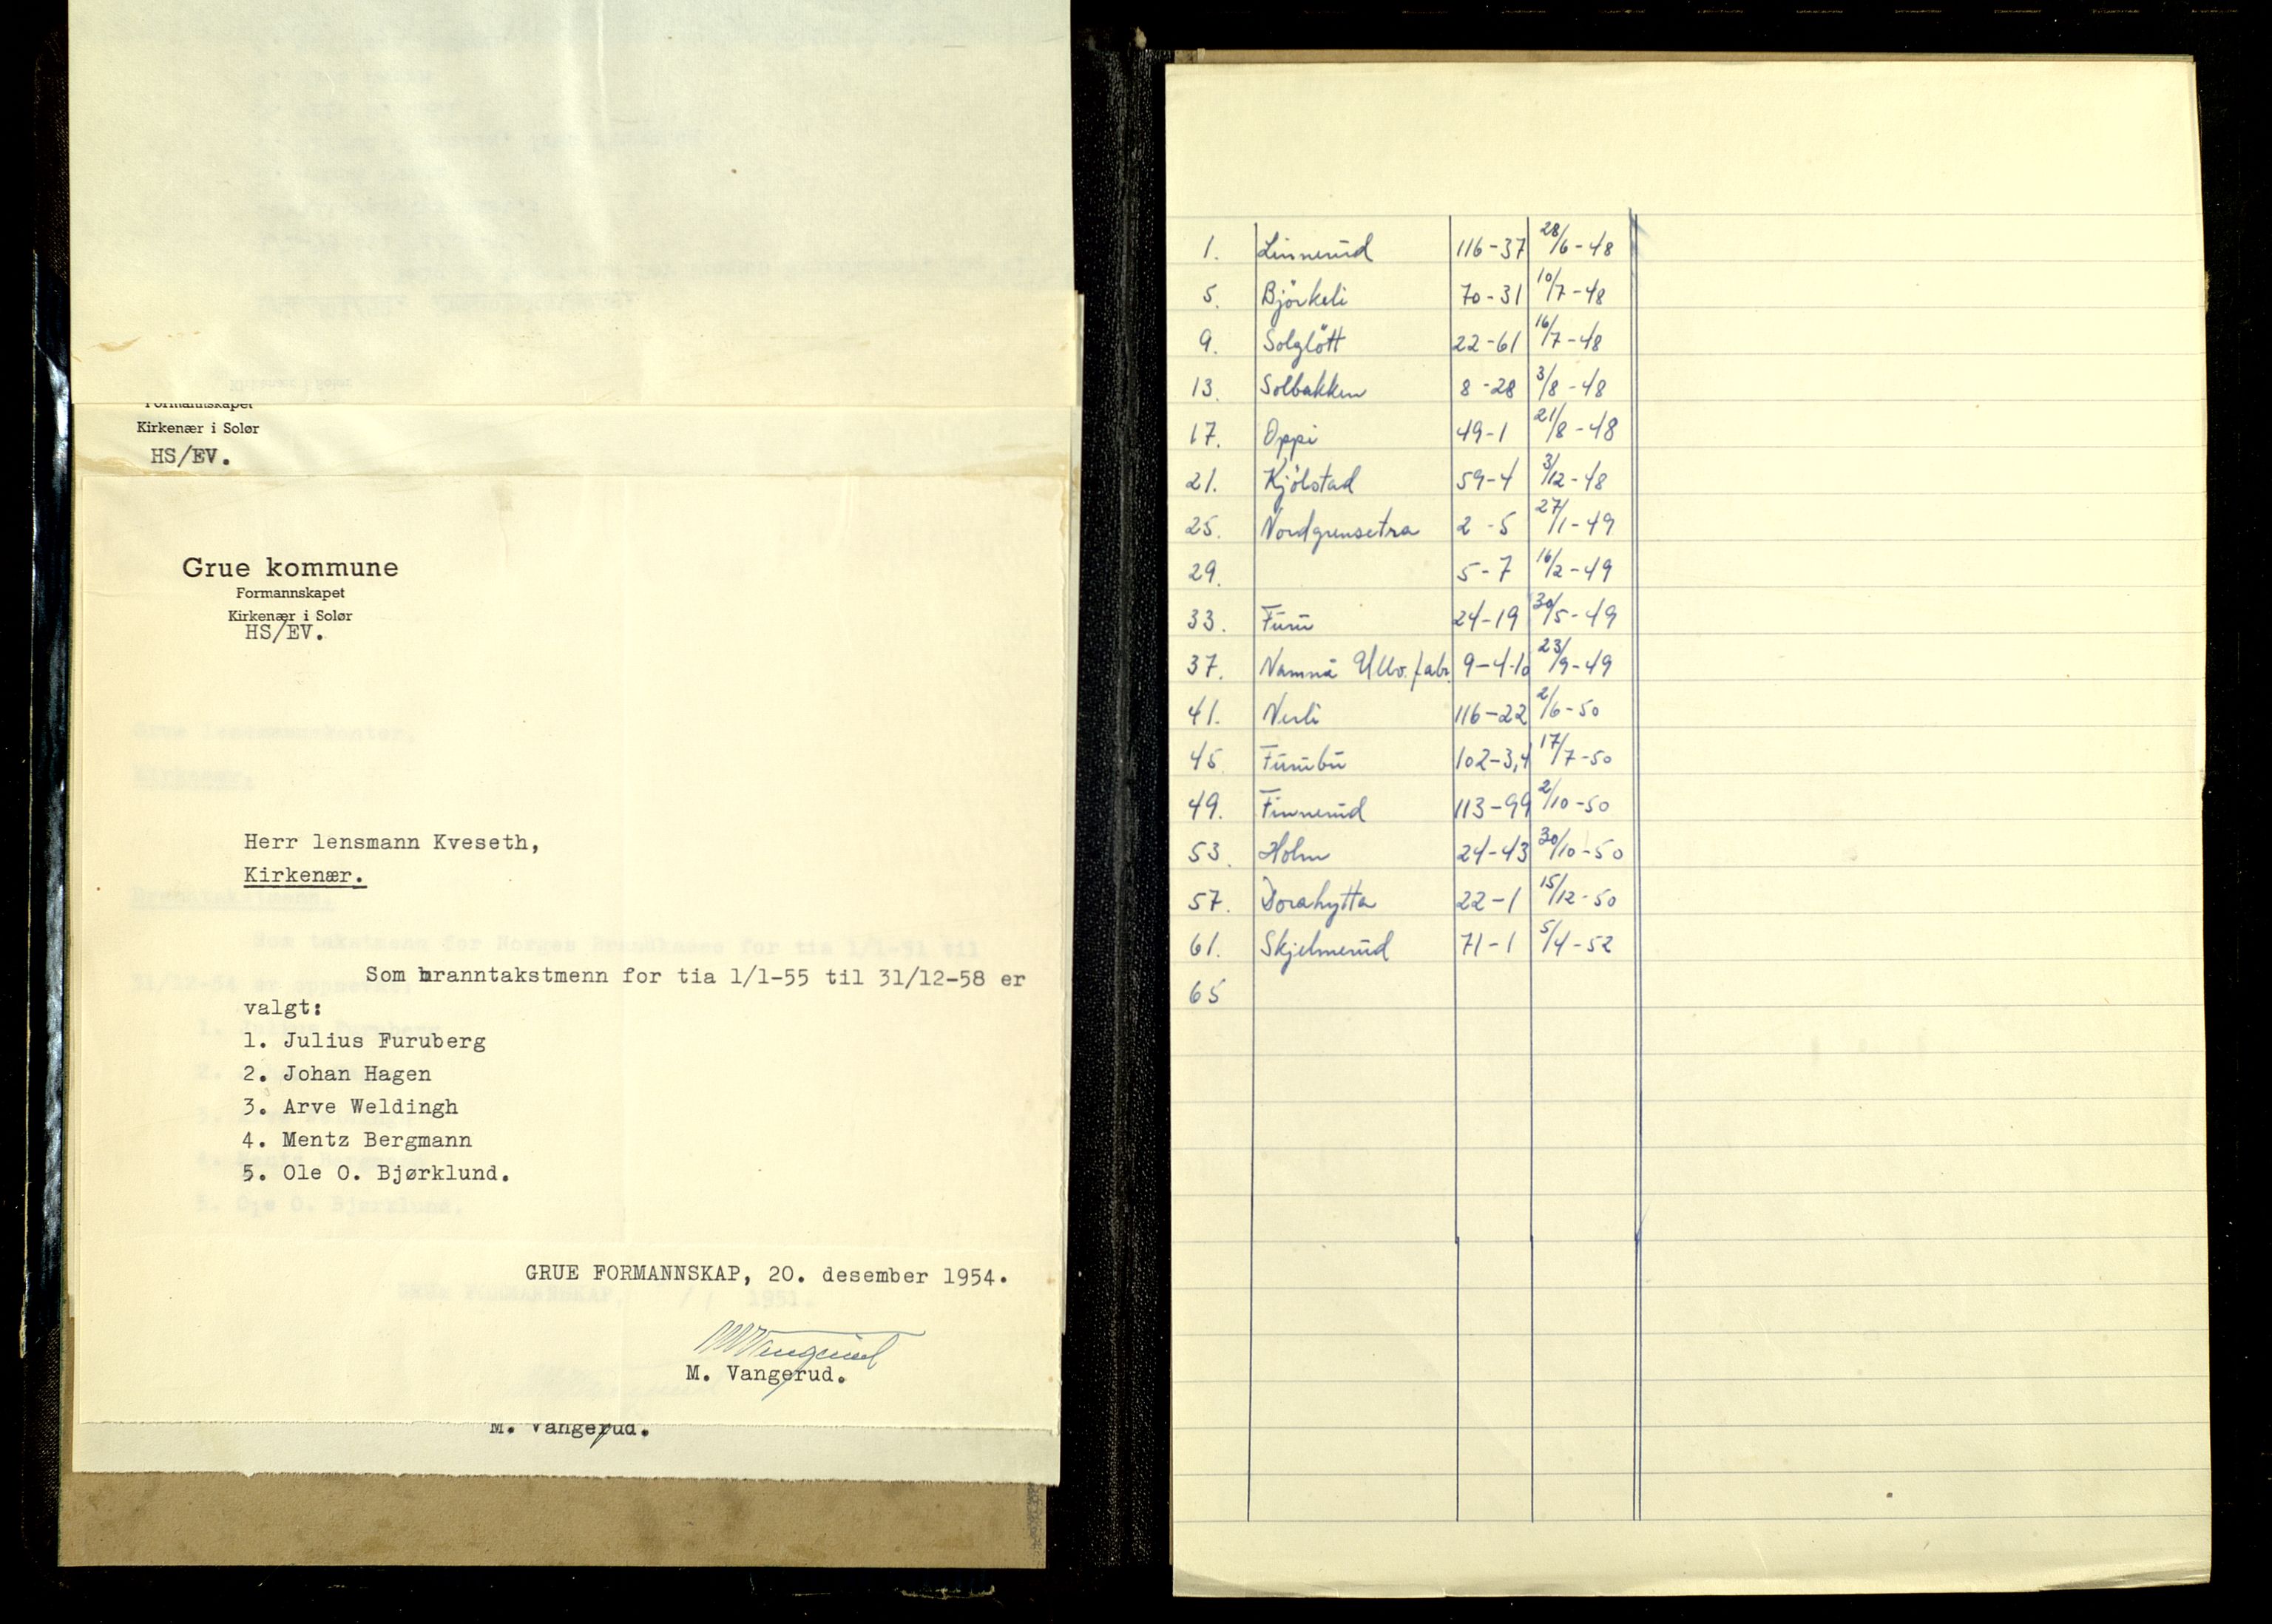 Formannskapet
Kirkenær i Solør
HS/EV.
Grue kommune
Formannskapet
Kirkenær i Solør
HS/EV.
Herr lensmann Kveseth,
Kirkenær.
Som branntakstmenn for tia 1/1-55 til 31/12-58 er
valgt:
1. Julius Furuberg
2. Johan Hagen
3. Arve Weldingh
4. Mentz Bergmann
5. Ole O. Bjørklund.
GRUE FORMANNSKAP, 20. desember 1954.
M. Vangerud.
M. Vangerud.
1. Linnerud 116-37 28/6-48
5. Björkeli 70-31 10/7-48
9. Solglött 22-61 16/7-48
13. Solbakken 8-28 3/8-48
17. Oppi 49-1 21/8-48
21. Kjölstad 59-4 3/12-48
25. Nordgrensetra 2-5 27/1-49
29. 5-7 16/2-49
33. Furu 24-19 30/5-49
37. Namnå Ullv.fabr. 9-4-10 23/9-49
41. Nerli 116-22 2/6-50
45 Furubu 102-3,4 17/7-50
49. Finnerud 113-99 2/10-50
53. Holm 24-43 30/10-50
57. Dorahytta 22-1 15/12-50
61. Skjelmerud 71-1 5/4-52
65